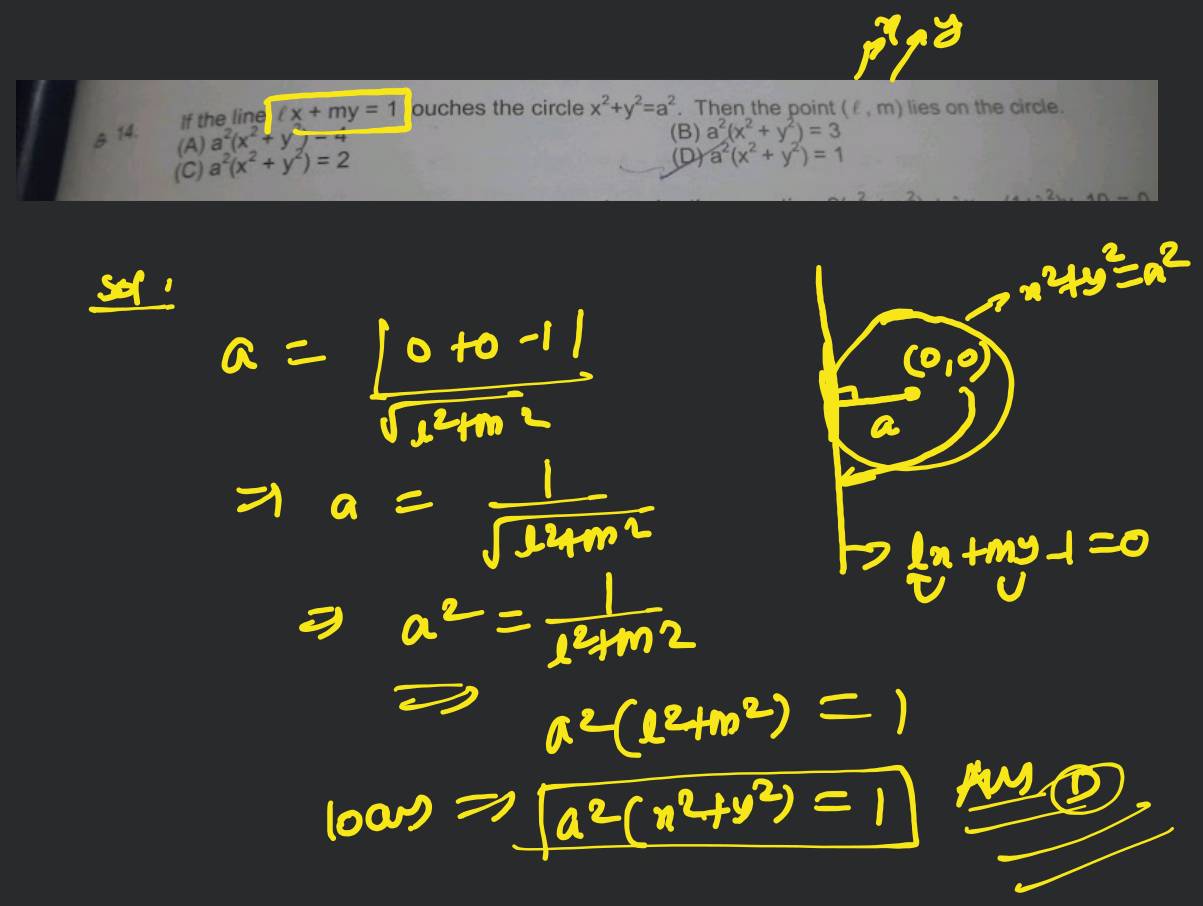 x y
14. If the line ℓx + my = 1 ouches the circle x²+y²=a². Then the point (ℓ, m) lies on the circle.
(A) a²(x² + y²) = 4 (B) a²(x² + y²) = 3
(C) a²(x² + y²) = 2 (D) a²(x² + y²) = 1
Sol :
x²+y²=a²
(0,0)
a
lx + my - 1 = 0
a = |0 + 0 - 1| / √l²+m²
⇒ a = 1 / √l²+m²
⇒ a² = 1 / l²+m²
⇒ a²(l²+m²) = 1
locus ⇒ a²(x²+y²) = 1 Ans D